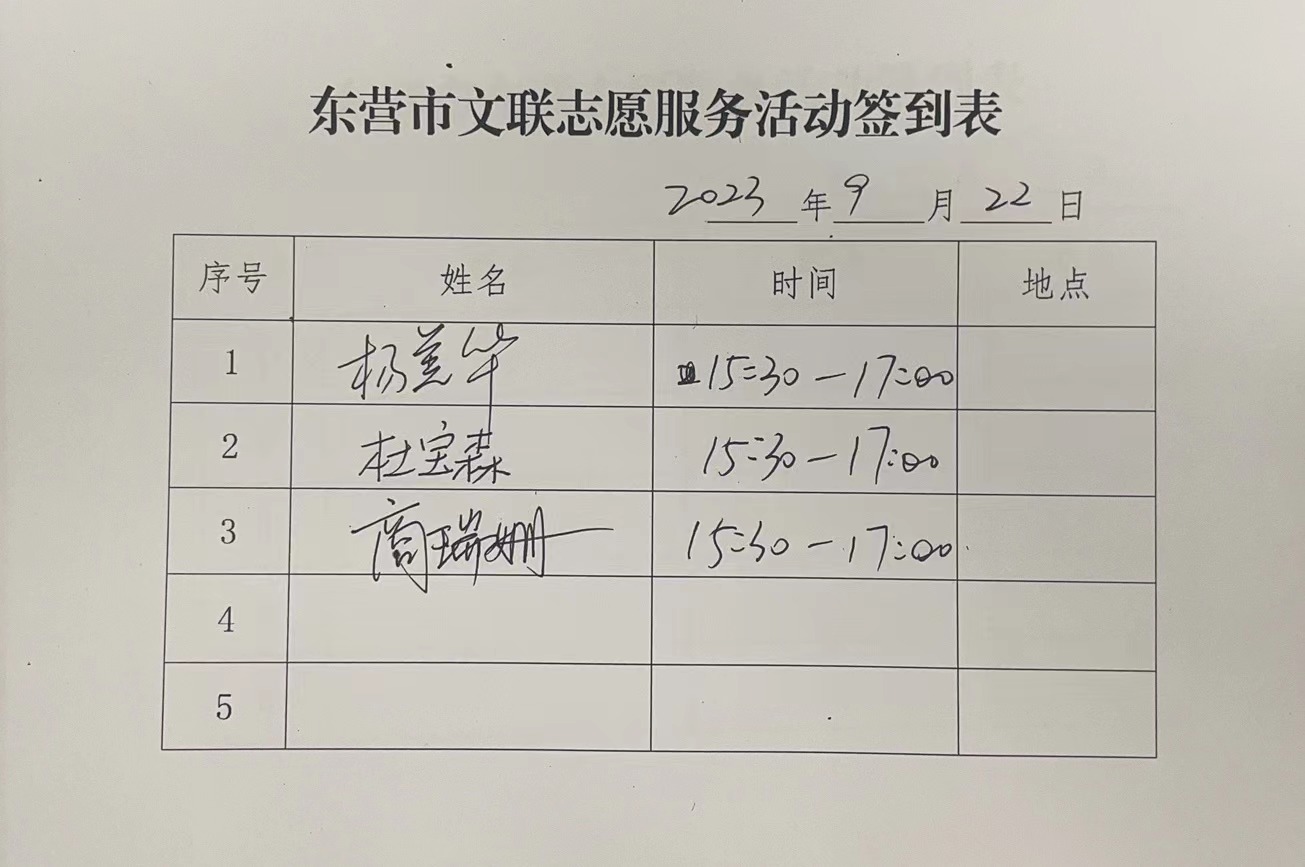 东营市文联志愿服务活动签到表
2023 年 9 月 22 日
序号 姓名 时间 地点
1 杨美华 15:30—17:00
2 杜宝森 15:30—17:00
3 商瑞姗 15:30—17:00
4
5